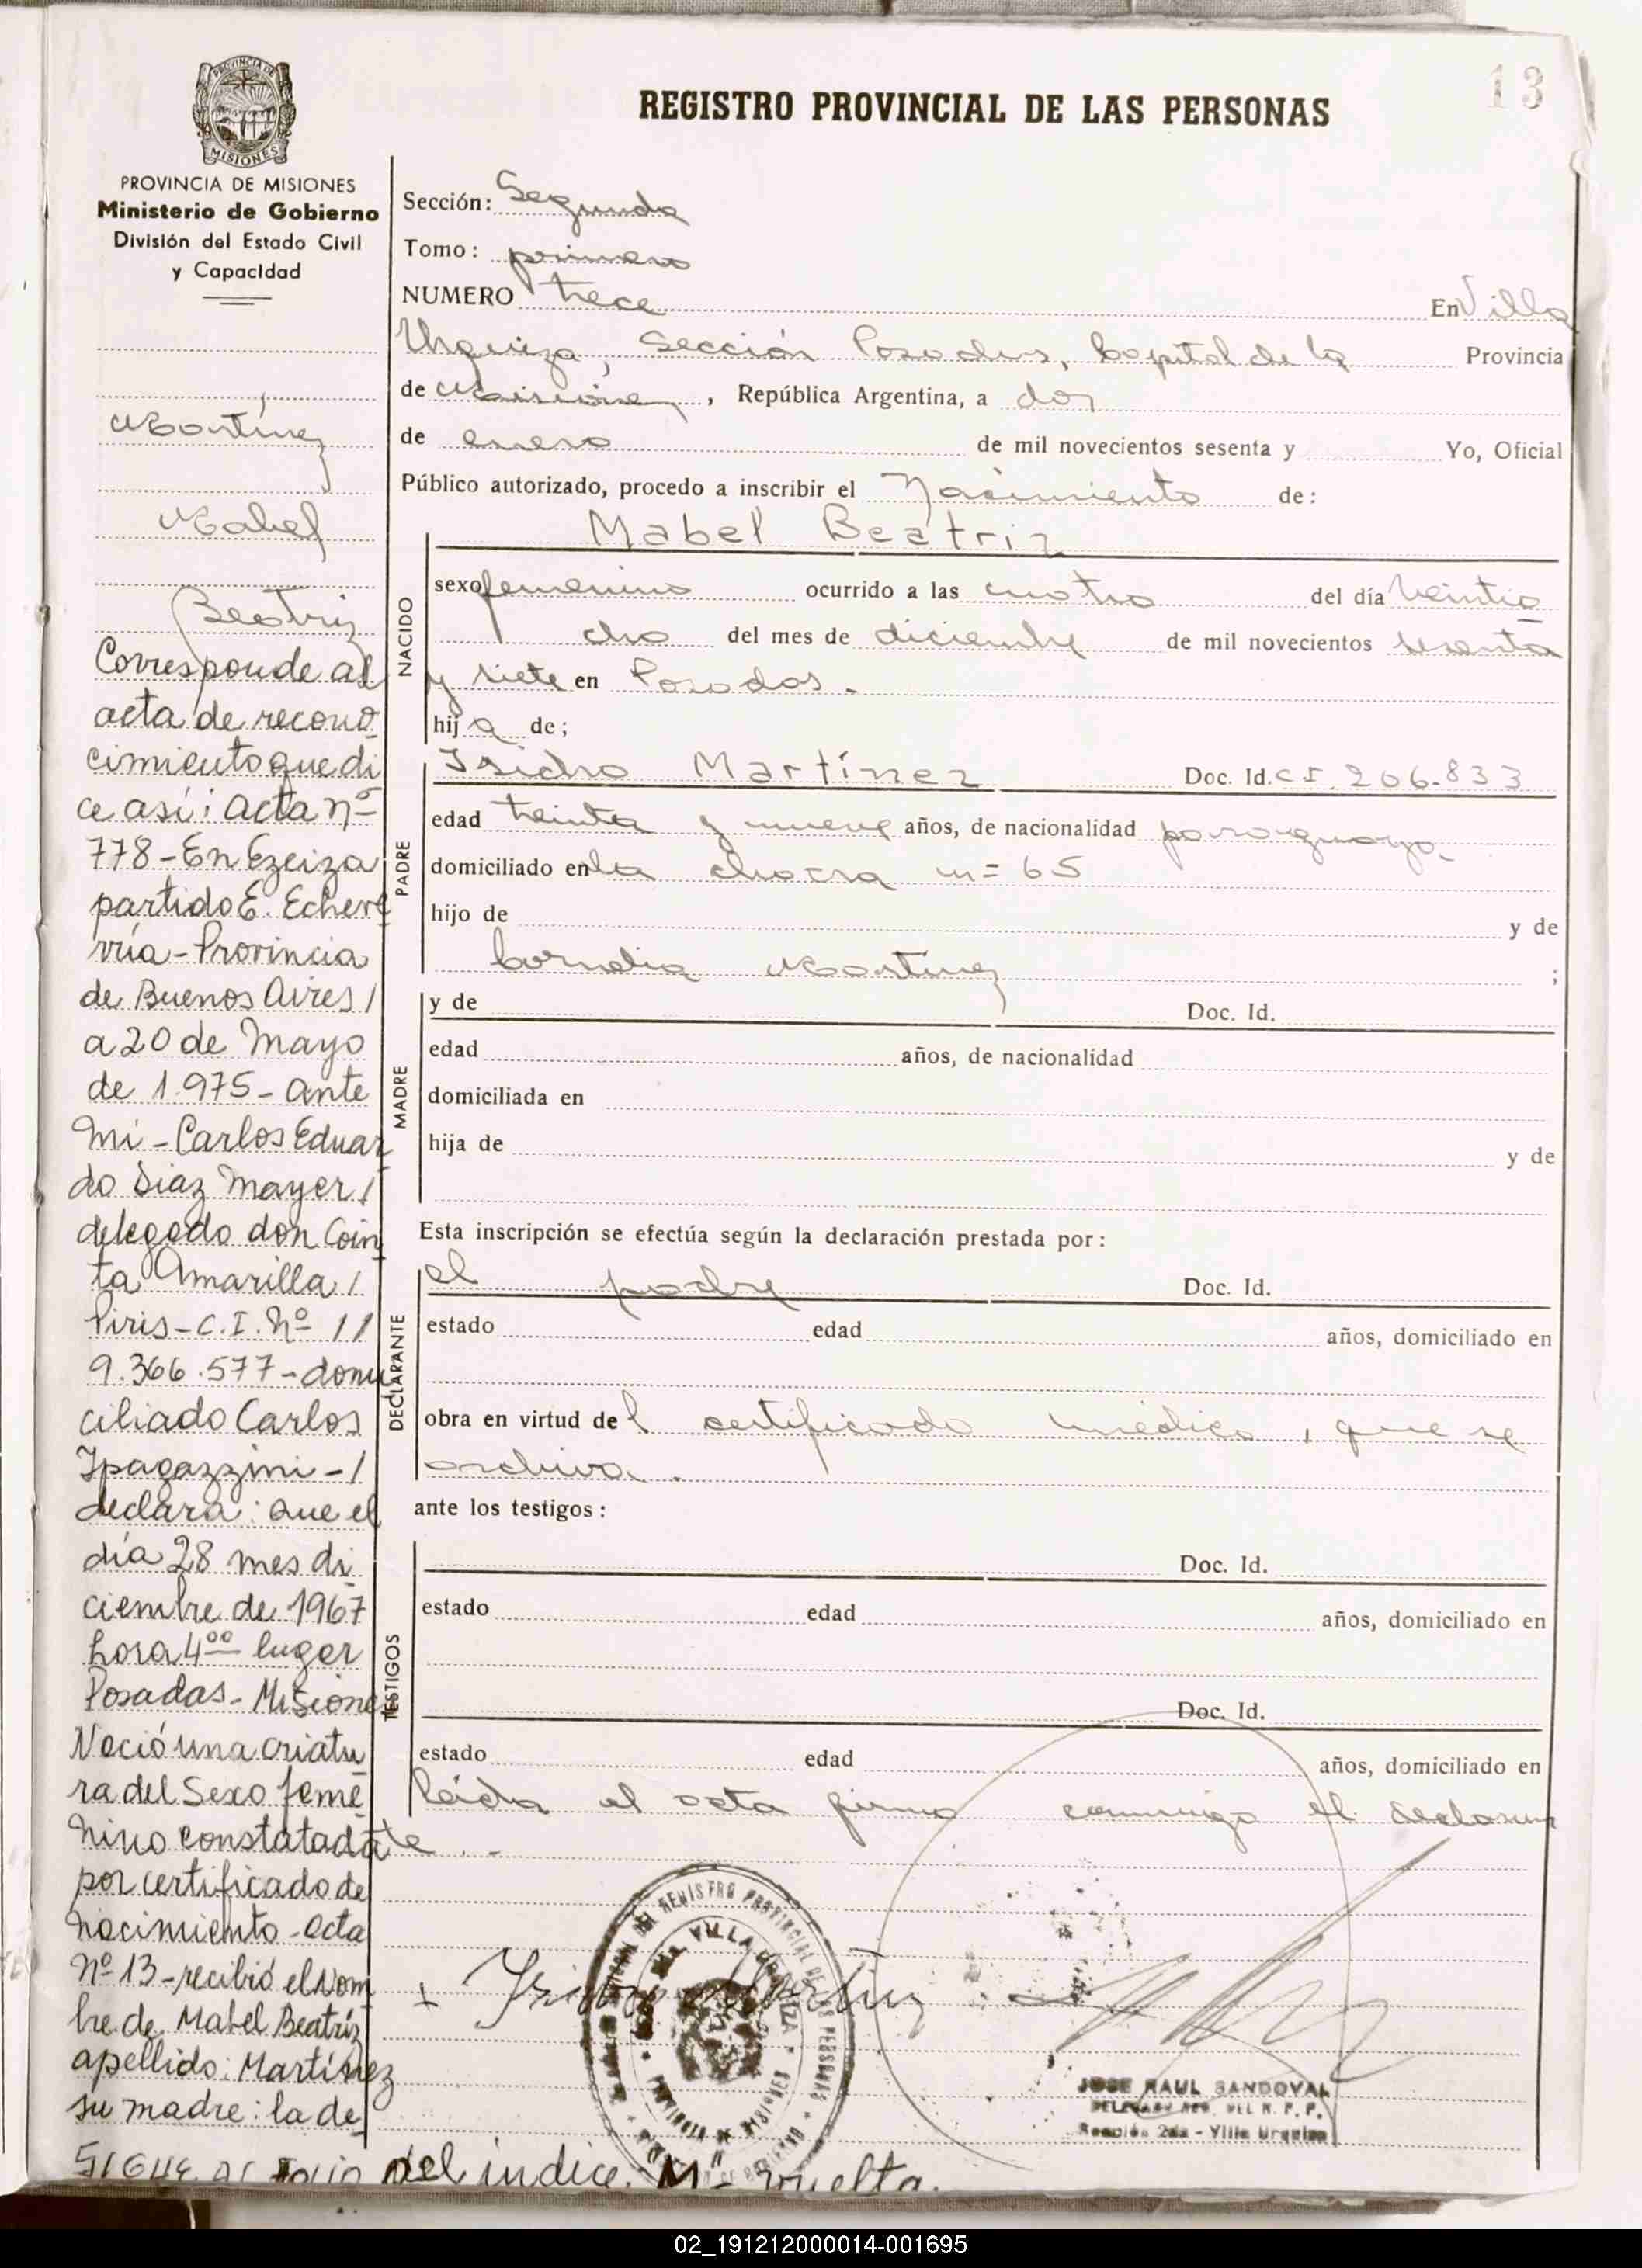 13
PROVINCIA DE
MISIONES
REGISTRO PROVINCIAL DE LAS PERSONAS
PROVINCIA DE MISIONES
Ministerio de Gobierno
División del Estado Civil
y Capacidad
Martínez
Mabel
Beatriz
Corresponde al
acta de recono
cimiento que di
ce así: acta nº
778 - En Ezeiza
partido E. Eche
vría - Provincia
de Buenos Aires /
a 20 de Mayo
de 1.975 - ante
mi - Carlos Eduar
do Diaz Mayer /
delegado don Coin
ta Amarilla /
Piris - C.I. Nº //
9.366.577 - domi
ciliado Carlos
Spagazzini - /
declara: que el
día 28 mes di
ciembre de 1967
hora 4⁰⁰ lugar
Posadas - Misiones
Nació una criatu
ra del Sexo feme
nino constatada
por certificado de
nacimiento - acta
nº 13 - recibió el nom
bre de Mabel Beatríz
apellido: Martínez
su madre: la de
SIGUE al folio del indice. Mª vuelta.
Sección: Segunda
Tomo: primero
NUMERO trece En Villa
Urquiza, Sección Posadas, Capital de la Provincia
de Misiones, República Argentina, a dos
de enero de mil novecientos sesenta y Yo, Oficial
Público autorizado, procedo a inscribir el Nacimiento de:
NACIDO
Mabel Beatriz
sexo femenino ocurrido a las cuatro del día veintio
cho del mes de diciembre de mil novecientos sesenta
y siete en Posadas.
hija de;
PADRE
Isidro Martínez Doc. Id. C I. 206.833
edad treinta y nueve años, de nacionalidad paraguayo.
domiciliado en la chacra nº 65
hijo de y de
Cornelia Martinez ;
MADRE
y de Doc. Id.
edad años, de nacionalidad
domiciliada en
hija de y de
Esta inscripción se efectúa según la declaración prestada por:
DECLARANTE
el padre Doc. Id.
estado edad años, domiciliado en
obra en virtud del certificado médico, que se
archiva.
ante los testigos:
TESTIGOS
Doc. Id.
estado edad años, domiciliado en
Doc. Id.
estado edad años, domiciliado en
Leída el acta firma conmigo el declaran
te.
Isidro Martinez
REGISTRO PROVINCIAL DE LAS PERSONAS
VILLA URQUIZA
JOSE RAUL SANDOVAL
DELEGADO DEL R. P. P.
Sección 2da - Villa Urquiza
02_191212000014-001695